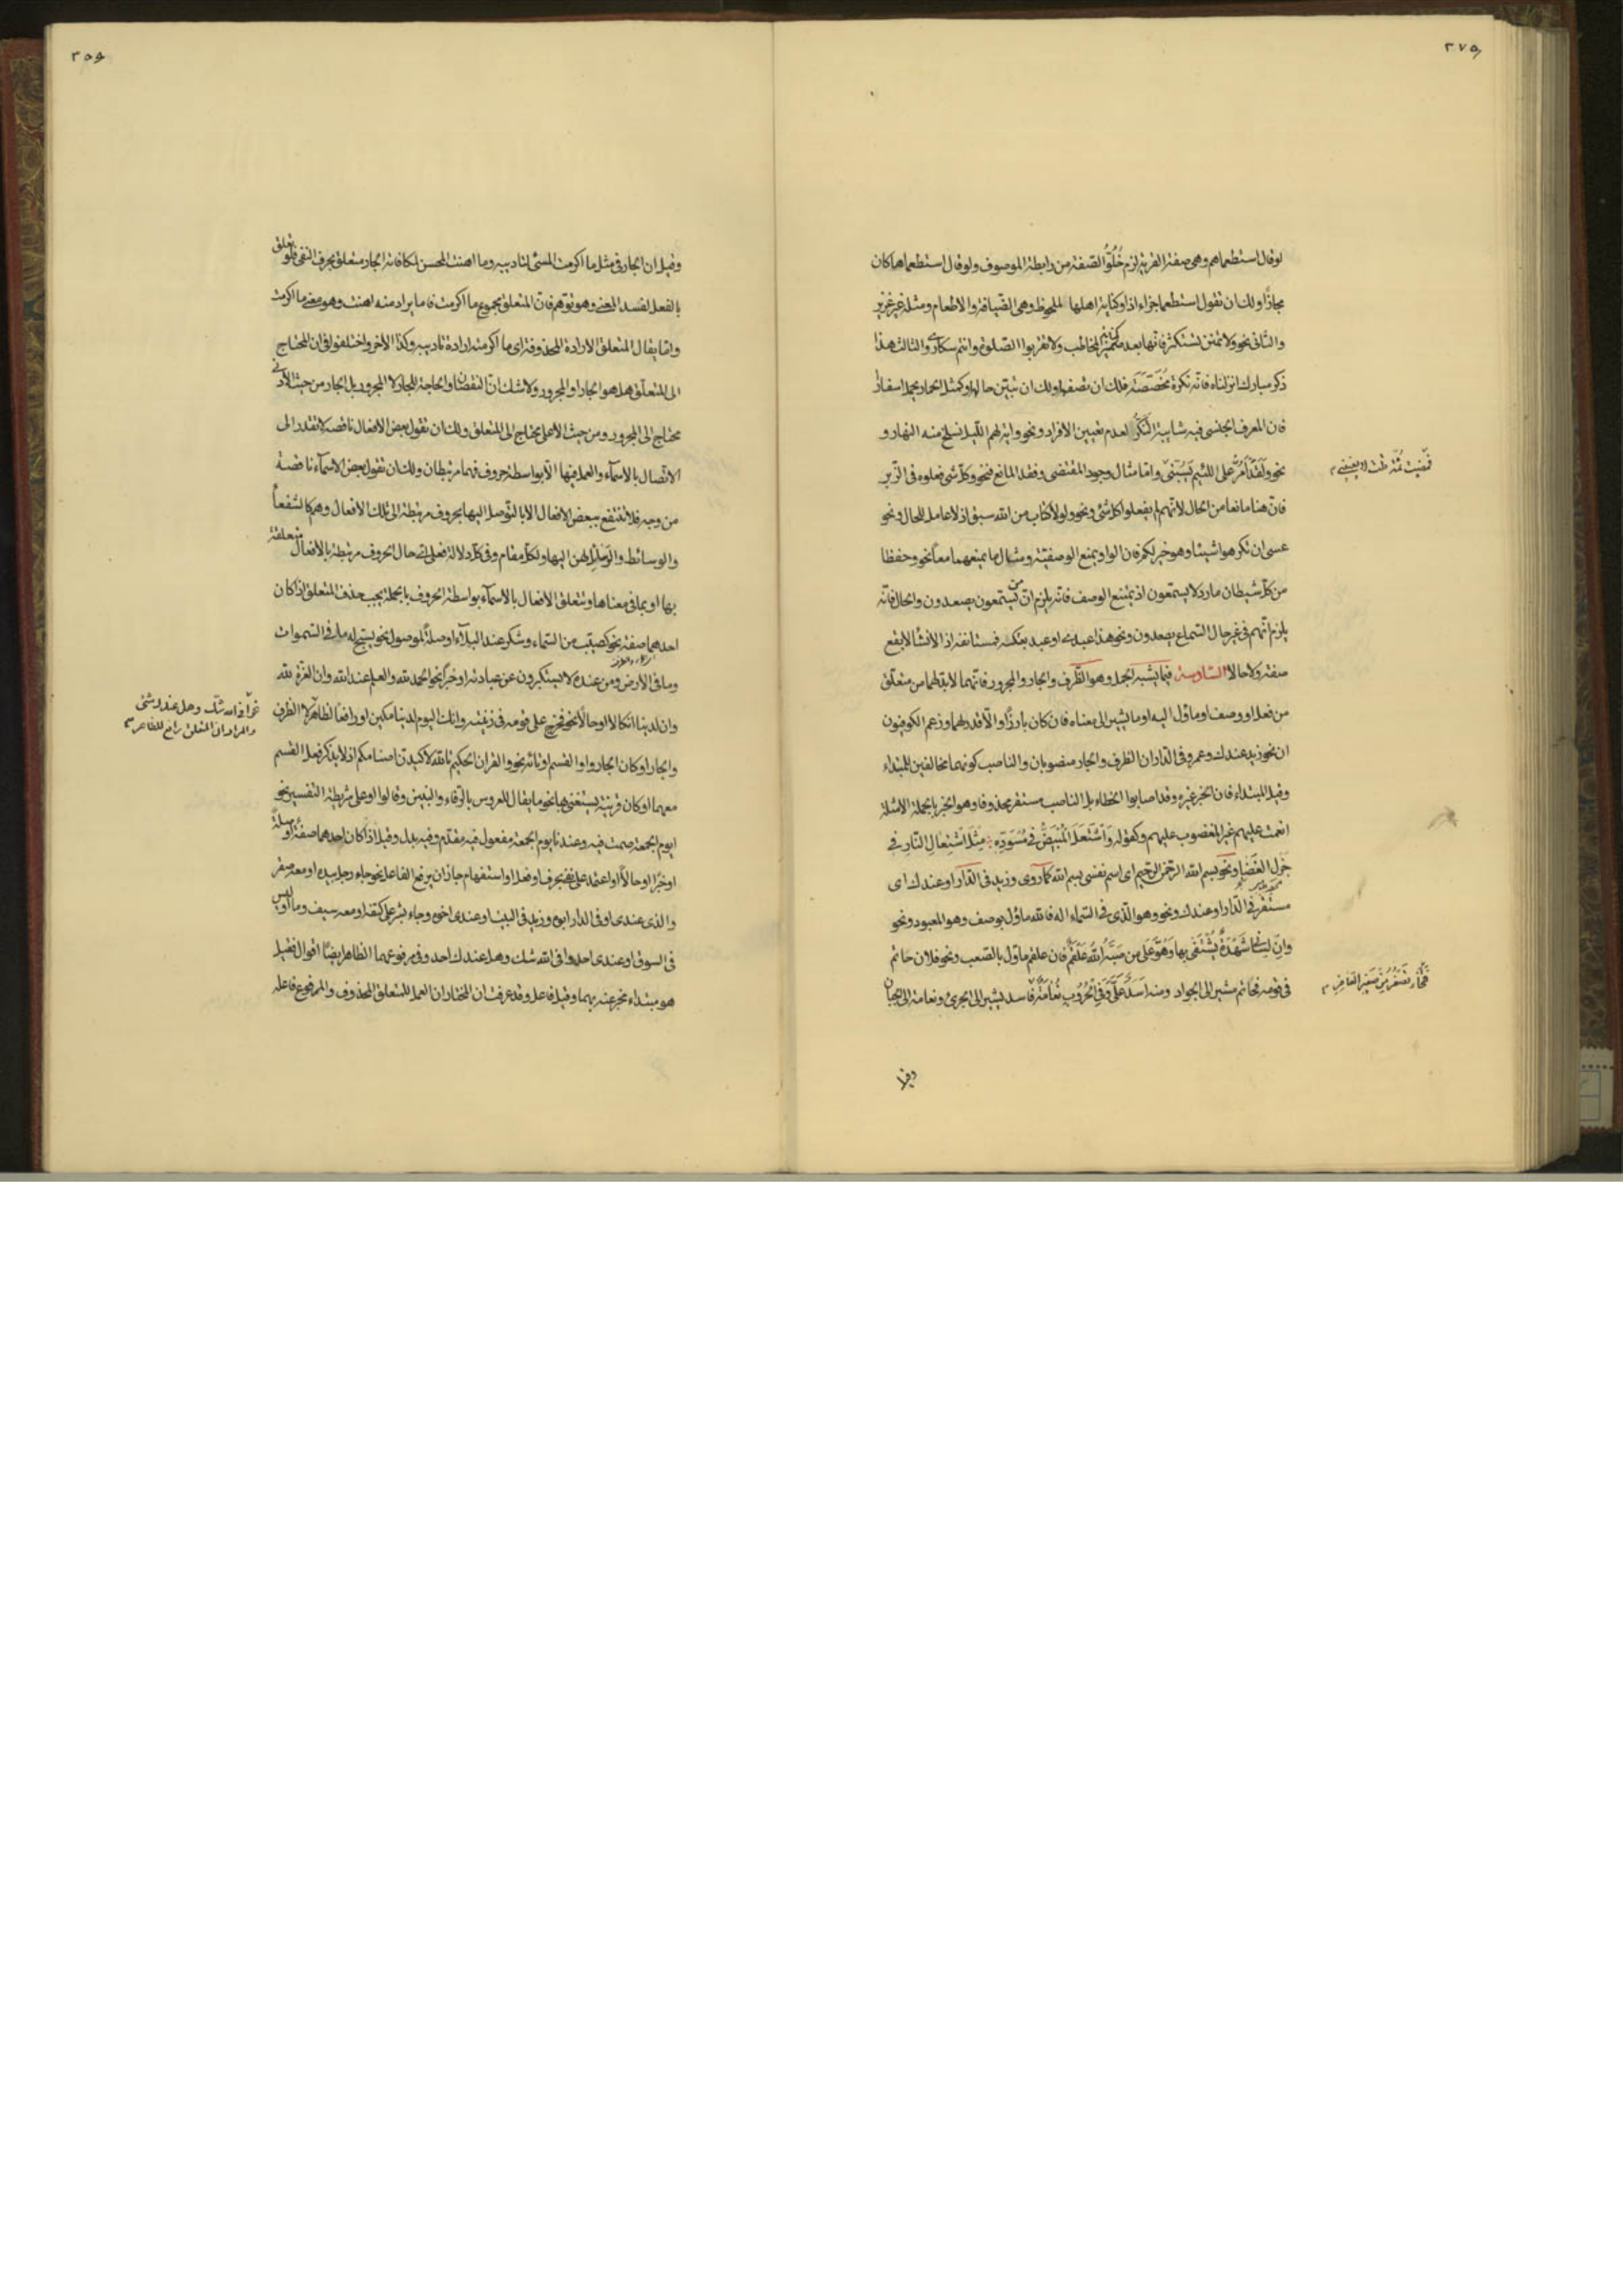 ٢٧٥
لو قال استطعماهم وهى صفة القرية لزم خُلُوُّ الصفة من رابطة الموصوف ولو قال استطعماها كان
مجازًا ولك ان تقول استطعما جزاء اذا وكناية اهلها الملحوظ وهى الضيافة والاطعام ومثله غير عزيز
والثانى نحو ولا تمنن تستكثر فانها بعد ضمير المخاطب ولا تقربوا الصلوة وانتم سكارى والثالث هذا
ذكر مبارك انزلناه فانه نكرة مُخَصَّصَة فلك ان تصفها ولك ان تبيّن حالها وكمثل الحمار يحمل اسفارًا
فان المعرف الجنسى فيه شايبة التنكّر لعدم تعيين الافراد ونحو واية لهم الليل نسلخ منه النهار و
نحو ولقد أمُرُّ على اللئيم يَسُبّنى واما مثال وجود المقتضى وفقد المانع فنحو وكل شئ فعلوه فى الزبر
فمضيت ثمّة قلت لا يعنينى
فان هنا مانعا من الحال لانهم لم يفعلوا كل شئ ونحو ولولا كتاب من الله سبق اذ لا عامل للحال ونحو
عسى ان تكرهوا شيئا وهو خير لكم فان الواو يمنع الوصفية ومثال ما يمنعهما معا نحو وحفظا
من كل شيطان مارد لا يسمعون اذ يمتنع الوصف فانه يلزم ان من يستمعون يصعدون والحال فانه
يلزم انهم فى غير حال السماع يصعدون ونحو هذا عبدى او عبد بعتكه فمستانفة اذ الانشا لا يقع
صفة ولا حالا السادسة فيما يشبه الجمل وهو الظرف والجار والمجرور فانهما لابد لهما من متعلق
من فعل او وصف او ماؤل اليه او ما يشير الى معناه فان كان بارزًا والا قدر لهما وزعم الكوفيون
ان نحو زيد عندك وعمرو فى الدار ان الظرف والجار منصوبان والناصب كونهما مخالفين للمبتداء
وقيل المبتداء فان الخبر غيره وقد اصابوا الخطاء بل الناصب مستقر محذوفا وهو الخبر بالجملة الامثلة
انعمت عليهم غير المغضوب عليهم وكقوله وَاشْتَعَلَ المُبْيَضُّ فى مُسْوَدِّهِ مِثْلَ اشْتِعَالِ النَّارِ فى
جَزْلِ الغَضَا ونحو بسم الله الرحمن الرحيم اى اسم نفسى بسم الله كما روى وزيد فى الدار او عندك اى
مستقر فى الدار او عندك ونحو وهو الذى فى السماء اله فالله ماؤل بوصف وهو المعبود ونحو
وانّ لسانى شَهْدَةٌ يُشْتَفى بها وهُوَّ على من صَبَّهُ اللهُ عَلْقَمُ فان علقم ماؤل بالصعب ونحو فلان حاتم
فى قومه فحاتم مشير الى الجواد ومنه اسدٌ عَلَىَّ وفى الحُرُوبِ نَعَامَةٌ فاسد يشير الى الجرئ ونعامة الى الجبان
فتخاء تنفر من صفير الصافر
وقيل ان الجار فى مثل ما اكرمت المسئ لتاديبه وما اهنت المحسن لمكافاته الجار متعلق بحرف النفى فلو تعلق
بالفعل لفسد المعنى وهو توهم فان المتعلق مجموع ما اكرمت فاما يراد منه اهنت وهو معنى ما اكرمت
واما يقال المتعلق الارادة المحذوفة اى ما اكرمته ارادة تاديبه وكذا الاخر واختلفوا فى ان المحتاج
الى المتعلق هل هو الجار او المجرور ولا شك ان النقصان والحاجة للجار لا المجرور بل الجار من حيث الادنى
محتاج الى المجرور ومن حيث الاعلى يحتاج الى المتعلق ولك ان تقول بعض الافعال ناقصة لا تقدر الى
الاتصال بالاسماء والعمل فيها الا بواسطة حروف فهما مرتبطان ولك ان تقول بعض الاسماء ناقصة
من وجه فلا تنتفع ببعض الافعال الا بالتوصل اليها بحروف مرتبطة الى تلك الافعال وهم كالشفعاء
والوسائط والوسايل لهن اليها ولكل مقام وفى كل دلالة فعلى اى حال الحروف مرتبطة بالافعال متعلقة
بها او بما فى معناها وتتعلق الافعال بالاسماء بواسطة الحروف بالجملة يجب حذف المتعلق اذا كان
احدهما صفة نحو كصيب من السماء وشكر عند البلاء او صلة لموصول نحو يسبح له ما فى السموات
وما فى الارض ومن عنده لا يستكبرون عن عبادته او خبرًا نحو الحمد لله والعلم عند الله وان العزة لله
وان لدينا انكالا او حالا نحو فخرج على قومه فى زينته وانك اليوم لدينا مكين او رافعا لظاهر لا الظرف
نحو أفى الله شك وهل عندك شئ
والمراد ان المتعلق رافع للظاهر
والجار او كان الجار واو القسم او تائه نحو والقران الحكيم تالله لاكيدن اصنامكم اذ لا يذكر فعل القسم
معهما او كان قرينة يستغنى بها نحو ما يقال للعروس بالرفاء والبنين وقالوا او على شريطة التفسير نحو
ايوم الجمعة صمت فيه وعندنا يوم الجمعة مفعول فيه مقدم وفيه بدل وقيل اذا كان احدهما صفة او صلة
او خبرًا او حالاً او اعتمد على نفى بحرف او فعل او استفهام جاز ان يرفع الفاعل نحو جاء رجل بيده او معه صقر
والذى عندى او فى الدار ابوه وزيد فى البيت او عندى اخوه وجاء بشر على كتفه او معه سيف وما او ليس
فى السوق او عندى احد وافى الله شك وهل عندك احد وفى مرفوعهما الظاهر ايضًا اقوال فقيل
هو مبتداء مخبر عنه بهما وقيل فاعل وقد عرفت ان المختار ان العمل للمتعلق المحذوف والمرفوع فاعله